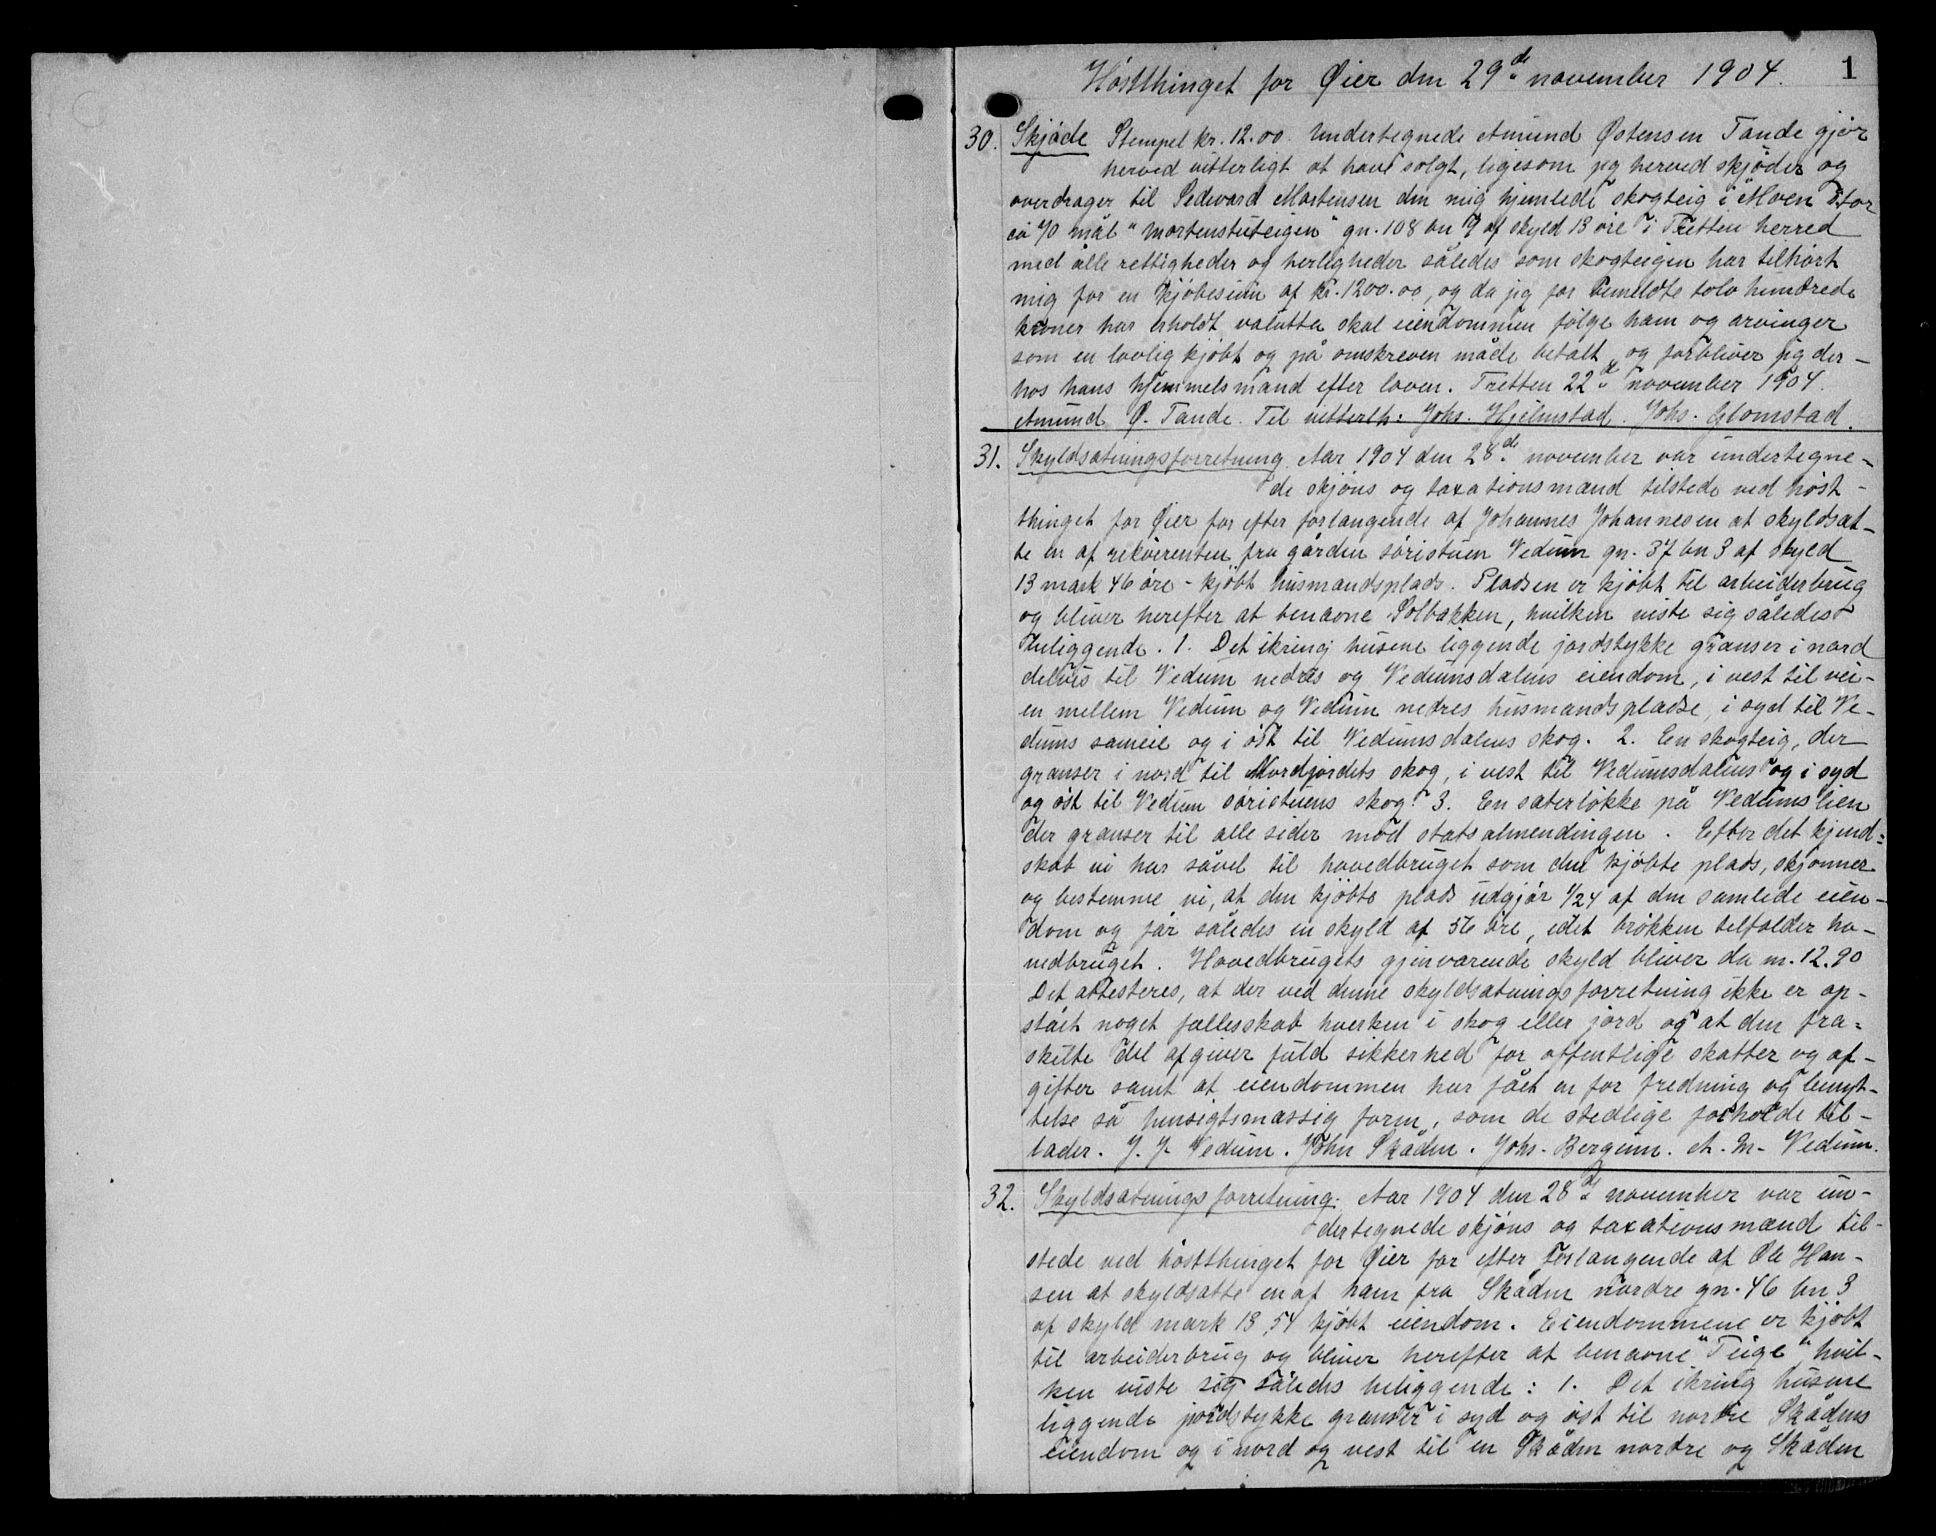 1
Høstthinget for Øier den 29de november 1904.
30. Skjøde Stempel kr. 12.00. Undertegnede Amund Østensen Tande gjør
herved vitterligt at have solgt, ligesom jeg herved skjøder og
overdrager til Sedevard Mortensen den mig hjemlede skogteig i Moen stor
ca 40 mål "Mortenstuteigen" gn. 108 bn 9 af skyld 13 øre i Tretten herred
med alle rettigheder og herligheder således som skogteigen har tilhørt
mig for en kjøbesum af kr. 1200.00, og da jeg for bemeldte tolv hundrede
kroner har erholdt valutta skal eiendommen følge ham og arvinger
som en lovlig kjøbt og på omskreven måde betalt, og forbliver jeg der-
hos hans hjemmelsmand efter loven. Tretten 22de november 1904.
Amund Ø. Tande. Til vitterlh: Johs. Hjelmstad. Johs. Glomstad.
31. Skyldsætningsforretning. Aar 1904 den 28de november var undertegne-
de skjøns og taxationsmænd tilstede ved høst-
thinget for Øier for efter forlangende af Johannes Johannesen at skyldsæt-
te en af rekvirenten fra gården søristuen Vedum gn. 37 bn 3 af skyld
13 mark 46 øre - kjøbt husmandsplads. Pladsen er kjøbt til arbeiderbrug
og bliver herefter at benævne Solbakken, hvilken viste sig således
beliggende. 1. Det ikring husene liggende jordstykke grænser i nord
delvis til Vedum nedres og Vedumsdalens eiendom, i vest til vei-
en mellem Vedum og Vedum nedres husmandspladse, i syd til Ve-
dums sameie og i øst til Vedumsdalens skog. 2. En skogteig, der
grænser i nord til Nordjordets skog, i vest til Vedumsdalens og i syd
og øst til Vedum søristuens skog. 3. En sæterløkke på Vedumslien
der grænser til alle sider mod statsalmendingen. Efter det kjend-
skab vi har såvel til hovedbruget som den kjøbte plads, skjønner
og bestemme vi, at den kjøbte plads udgjør 1/24 af den samlede eien-
dom og får således en skyld af 56 øre, idet brøkken tilfalder ho-
vedbruget. Hovedbrugets gjenværende skyld bliver da m. 12.90
Det attesteres, at der ved denne skyldsætningsforretning ikke er op-
stået noget fællesskab hverken i skog eller jord og at den fra-
skilte del afgiver fuld sikkerhed for offentlige skatter og af-
gifter samt at eiendommen har fået en for fredning og benyt-
telse så hensigtsmæssig form, som de stedlige forholde til-
lader. J. J. Vedum. John Skåden. Johs. Bergum. A. M. Vedum.
32. Skyldsætningsforretning. Aar 1904 den 28de november var un-
dertegnede skjøns og taxationsmænd til-
stede ved høstthinget for Øier for efter forlangende af Ole Han-
sen at skyldsætte en af ham fra Skåden nordre gn. 46 bn 3
af skyld mark 13,54 kjøbt eiendom. Eiendommene er kjøbt
til arbeiderbrug og bliver herefter at benævne "Teige" hvil-
ken viste sig således beliggende: 1. Det ikring husene
liggende jordstykke grænser i syd og øst til nordre Skådens
eiendom og i nord og vest til en Skåden nordre og Skåden